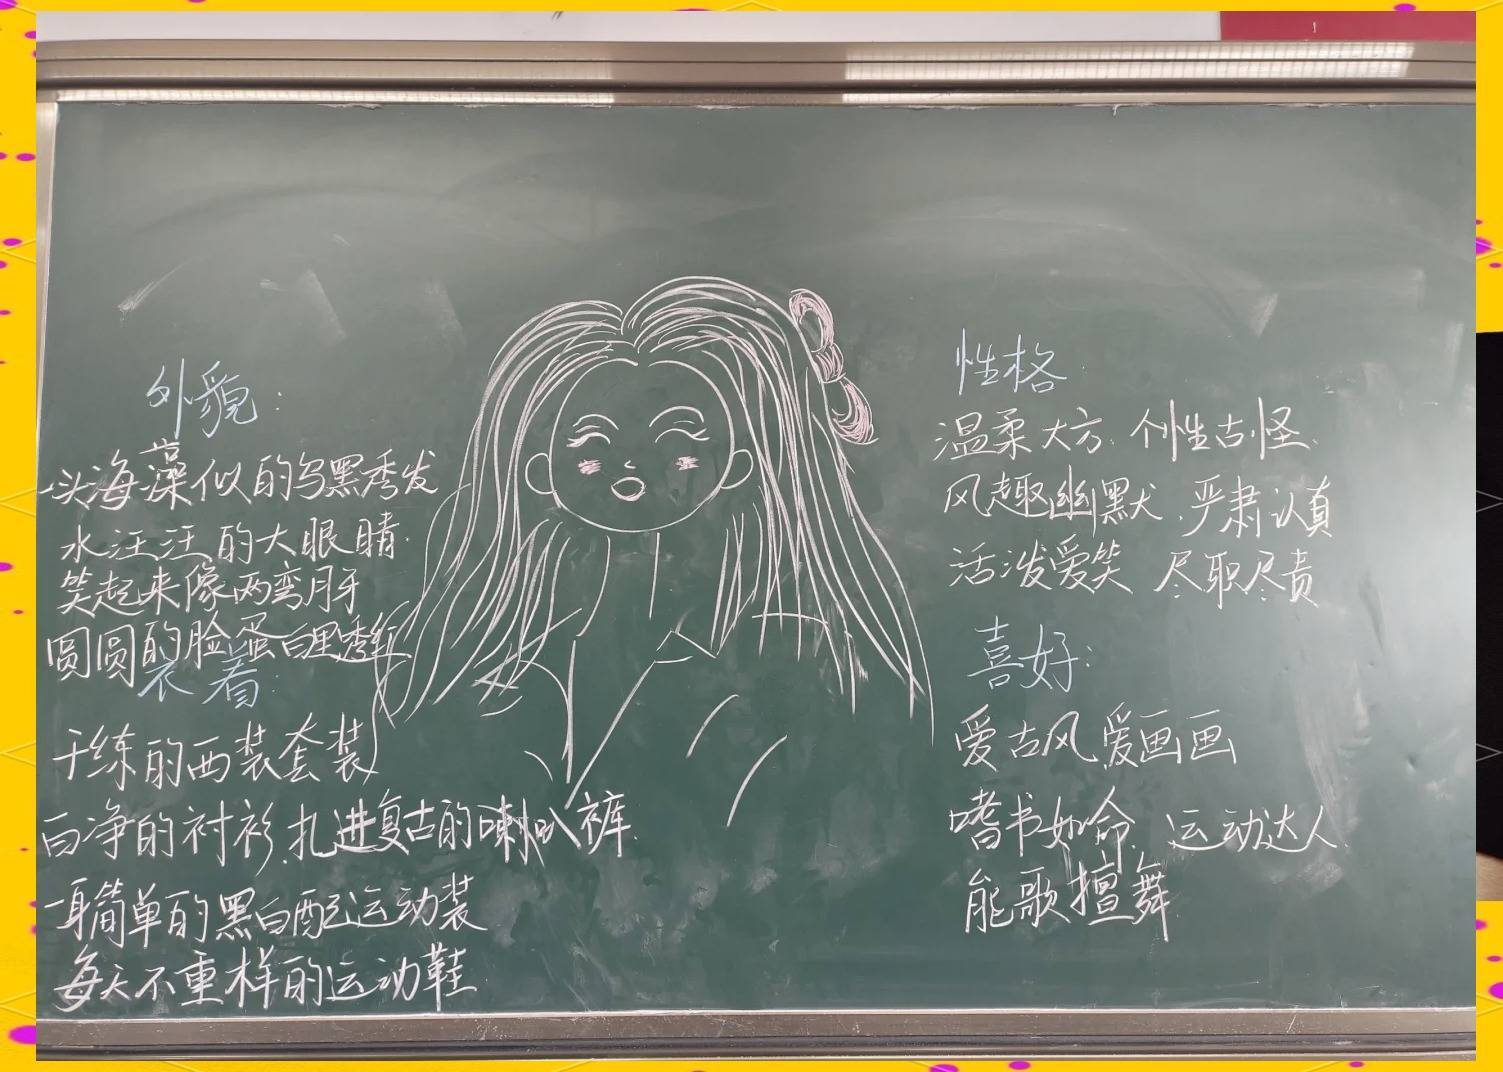 外貌：
一头海藻似的乌黑秀发
水汪汪的大眼睛.
笑起来像两弯月牙
圆圆的脸蛋白里透红
衣着：
干练的西装套装
白净的衬衫,扎进复古的喇叭裤.
一身简单的黑白配运动装
每天不重样的运动鞋.
性格：
温柔大方. 个性古怪.
风趣幽默. 严肃认真
活泼爱笑 尽职尽责
喜好：
爱古风,爱画画
嗜书如命. 运动达人.
能歌擅舞.